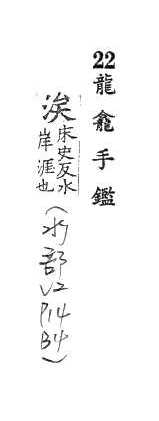 22龍龕手鑑
涘床史反水
岸涯也
(水部V2P14B4)